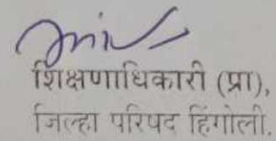 शिक्षणाधिकारी (प्रा),
जिल्हा परिषद हिंगोली.